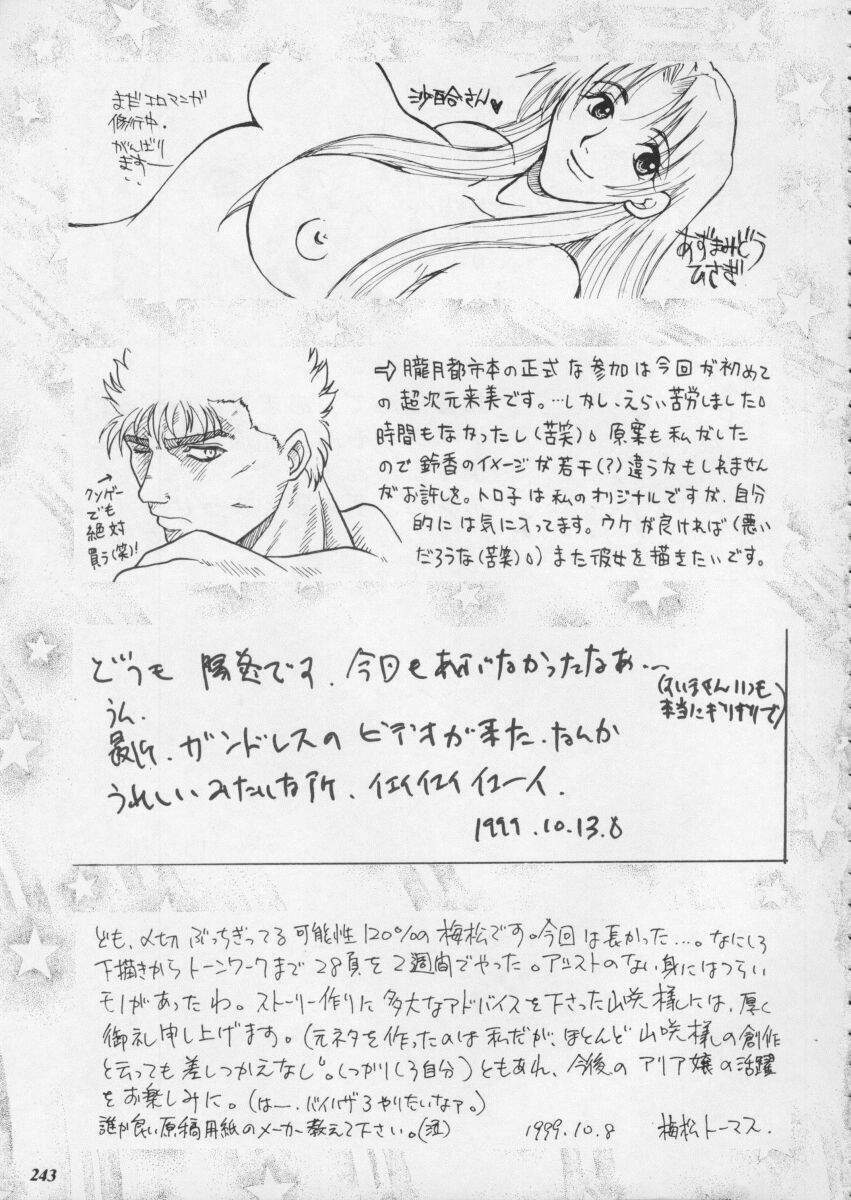 まだエロマンガ
修行中.
がんばり
ますー
沙百合さん♥
あずまみどう
ひさぎ
⇨朧月都市本の正式な参加は今回が初めて
の超次元来美です。…しかし、えらい苦労しました。
時間もなかったし(苦笑)。原案も私がした
ので鈴香のイメージが若干(?)違うかもしれません
がお許しを。トロ子は私のオリジナルですが、自分
的には気に入ってます。ウケが良ければ(悪い
だろうな(苦笑)。)また彼女を描きたいです。
→
クソゲー
でも
絶対
買う(笑)!
どうも 陽炎です. 今回もあぶなかったなあ…
(すいませんいつも
本当にギリギリで)
うん.
最近. ガンドレスのビデオが来た. なんか
うれしいみたいな所. イエイイエイイエーイ.
1999.10.13.8
ども、〆切ぶっちぎってる可能性120%の梅松です。今回は長かった…。なにしろ
下描きからトーンワークまで28頁を2週間でやった。アシストのない身にはつらい
モノがあったわ。ストーリー作りに多大なアドバイスを下さった山咲様には、厚く
御礼申し上げます。(元ネタを作ったのは私だが、ほとんど山咲様の創作
と云っても差しつかえなし。しっかりしろ自分)ともあれ、今後のアリア嬢の活躍
をお楽しみに。(はー、バイハザ3やりたいなァ。)
誰か良い原稿用紙のメーカー教えて下さい。(泣) 1999.10.8 梅松トーマス.
243